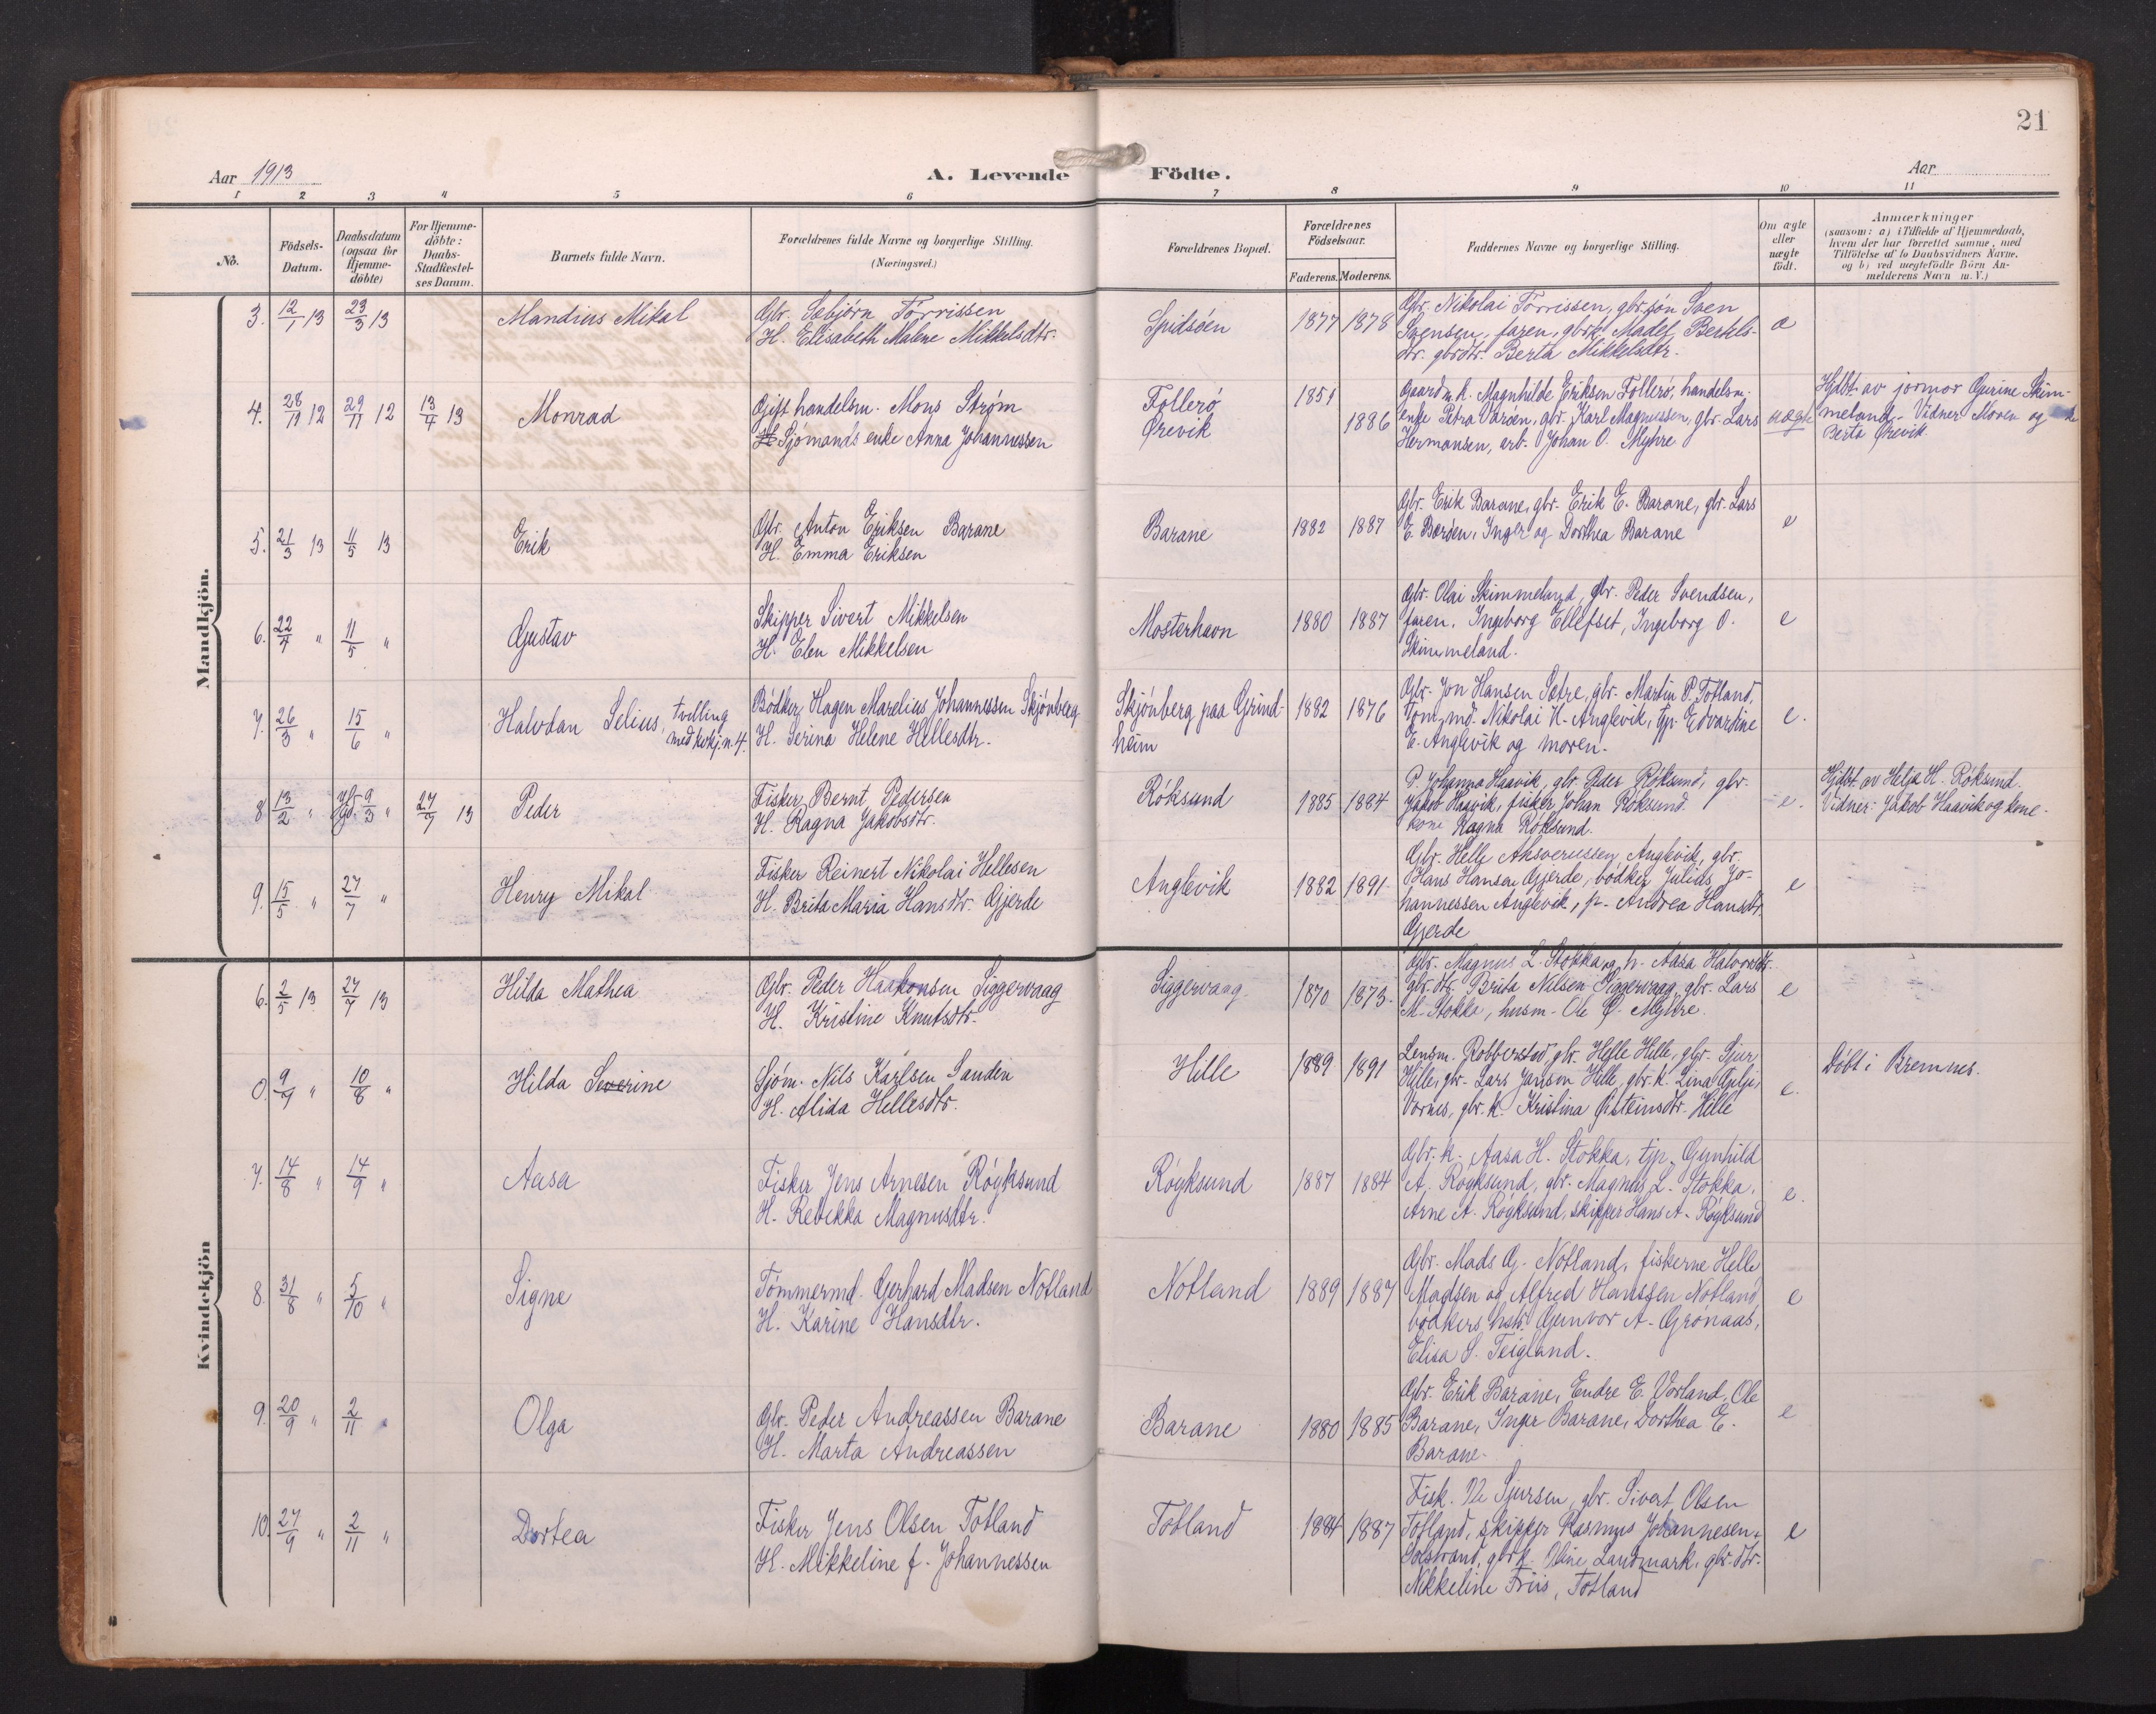 21
Aar 1913
A. Levende Födte.
Aar
1 2 3 4 5 6 7 8 9 10 11
No.
Födsels-Datum.
Daabsdatum (ogsaa for Hjemme-döbte)
For Hjemme-döbte: Daabs-Stadfæstel-ses Datum.
Barnets fulde Navn.
Forældrenes fulde Navne og borgerlige Stilling. (Næringsvei.)
Forældrenes Bopæl.
Forældrenes Födselsaar.
Faderens. Moderens.
Faddernes Navne og borgerlige Stilling.
Om ægte eller uægte födt.
Anmærkninger
(saasom: a) i Tilfælde af Hjemmedaab,
hvem der har forrettet samme, med
Tilföielse af to Daabsvidners Navne,
og b) ved uægtefödte Börn An-
melderens Navn m. V.)
Mandkjön.
3. 12/1 13 23/3 13 Mandius Mikal
Gbr. Sebjörn Törrissen
H. Elisabeth Malene Mikkelsdtr.
Spidsöen 1877 1878
Gbr. Nikolai Törrissen, gbr.sön Sven
Svensen, faren, gbrk. Madel Bertels-
dtr. gbrdtr. Berta Mikkelsdtr.
e
4. 28/11 12 29/11 12 13/4 13 Monrad
Gift handelsm. Mons Ström
H. Sjömands enke Anna Johannessen
Folleró
Örevik
1851
1886
Gaardm.k. Magnhilde Eriksen Folleró, handelsm.
enke Petra Varöen, gbr. Karl Magnussen, gbr. Lars
Hermansen, arb. Johan O. Myhre
uægte
Hjdbt. av jormor Gurine Skim-
meland. Vidner Moren og
Berta Örevik.
5. 21/3 13 11/5 13 Erik
Gbr. Anton Eriksen Barane
H. Emma Eriksen
Barane 1882 1887
Gbr. Erik Barane, gbr. Erik E. Barane, gbr. Lars
E. Baröen, Inger og Dorthea Barane
e
6. 22/4 " 11/5 " Gustav
Skipper Sivert Mikkelsen
H. Elen Mikkelsen
Mosterhavn 1880 1887
Gbr. Olai Skimmeland, gbr. Peder Svendsen,
faren, Ingeborg Ellefset, Ingeborg O.
Skimmeland.
e
7. 26/3 " 15/6 " Halvdan Selius, tvilling
med kvkj. n. 4
Bödker Hagen Marelius Johannessen Skjönberg
H. Serina Helene Hellesdtr.
Skjönberg paa Grind-
heim
1882 1876
Gbr. Jon Hansen Sætre, gbr. Martin P. Totland,
tömmd. Nikolai H. Anglevik, tjp. Edvardine
E. Anglevik og moren.
e.
8 13/2 " 9/3 " 27/7 13 Peder
Fisker Bernt Pedersen
H. Ragna Jakobsdtr.
Röksund 1885 1884
P. Johanna Haavik, gbr. Peder Röksund, gbr.
Jakob Haavik, fisker Johan Röksund.
kone Ragna Röksund.
e.
Hjdbt. av Helje H. Röksund.
Vidner: Jakob Haavik og kone.
9. 15/5 " 27/7 " Henry Mikal
Fisker Reinert Nikolai Hellesen
H. Brita Maria Hansdtr. Gjerde
Anglevik 1882 1891
Gbr. Helle Ahsverussen Anglevik, gbr.
Hans Hansen Gjerde, bödker Julius Jo-
hannessen Anglevik, p. Andrea Hansdtr.
Gjerde
e
Kvindekjön
6. 2/5 13 27/7 13 Hilda Mathea
Gbr. Peder Haakonsen Siggervaag
H. Kristine Knutsdtr.
Siggervaag 1870 1873
Gbr. Magnus L. Stokka og h. Aasa Halvorsdtr.
gbr.dtr. Brita Nilsen Siggervaag, gbr. Lars
M. Stokka, husm. Ole Ö. Myhre.
e
0. 9/7 " 10/8 " Hilda Severine
Sjöm. Nils Karlsen Sanden
H. Alida Hellesdtr.
Hille 1889 1891
Lensm. Robberstad, gbr. Helle Hille, gbr. Sjur
Hille, gbr. Lars Jansen Hille, gbr. k. Lina Gilje,
Vornes, gbr. k. Kristina Östeinsdtr. Hille
e.
Döbt i Bremnes.
7. 14/8 " 14/9 " Aasa
Fisker Jens Arnesen Röyksund
H. Rebekka Magnusdtr.
Röyksund 1887 1884
Gbr. k. Aasa H. Stokka, tjp. Gunhild
A. Röyksund, gbr. Magnus L. Stokka,
Arne A. Röyksund, skipper Hans A. Röyksund
e.
8. 31/8 " 5/10 " Signe
Tömmermd. Gerhard Madsen Notland
H. Karine Hansdtr.
Notland 1889 1887
Gbr. Mads G. Notland, fiskerne Helle
Madsen og Alfred Hanssen Notland
bödkers hstr. Gunvor A. Grönaas,
Elisa S. Teigland.
e
9. 20/9 " 2/11 " Olga
Gbr. Peder Andreassen Barane
H. Marta Andreassen
Barane 1880 1885
Gbr. Erik Barane, Endre E. Vorland, Ole
Barane, Inger Barane, Dorthea E.
Barane.
e
10. 27/9 " 2/11 " Dortea
Fisker Jens Olsen Totland
H. Mikkeline f. Johannessen
Totland 1884 1887
Fisk. Ole Sjursen, gbr. Sivert Olsen
Totland, skipper Rasmus Johannesen,
Solstrand, gbrk. Oline Landmark, gbr. dtr.
Nikkeline Friis, Totland
e